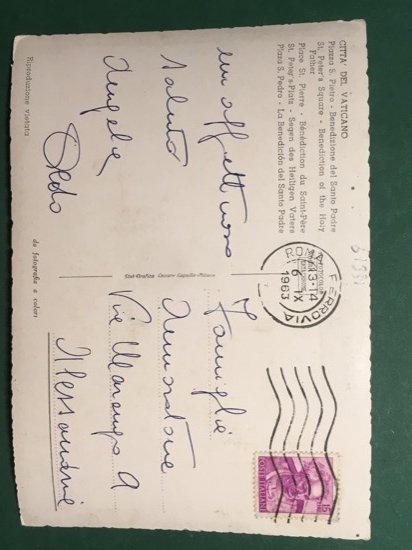 CITTA' DEL VATICANO
Piazza S. Pietro - Benedizione del Santo Padre
St. Peter's Square - Benediction of the Holy
Father
Place St. Pierre - Bénédiction du Saint-Père
St. Peter's-Platz - Segen des Heiligen Vaters
Plaza S. Pedro - La Benedición del Santo Padre
un affettuoso
saluto
Angela
Aldo
Riproduzione vietata
da fotografia a colori
Stab. Grafico Cesare Capello - Milano
ROMA FERROVIA
13-14
6 IX
1963
15
POSTE ITALIANE
Famiglia
Via Marengo
Alessandria